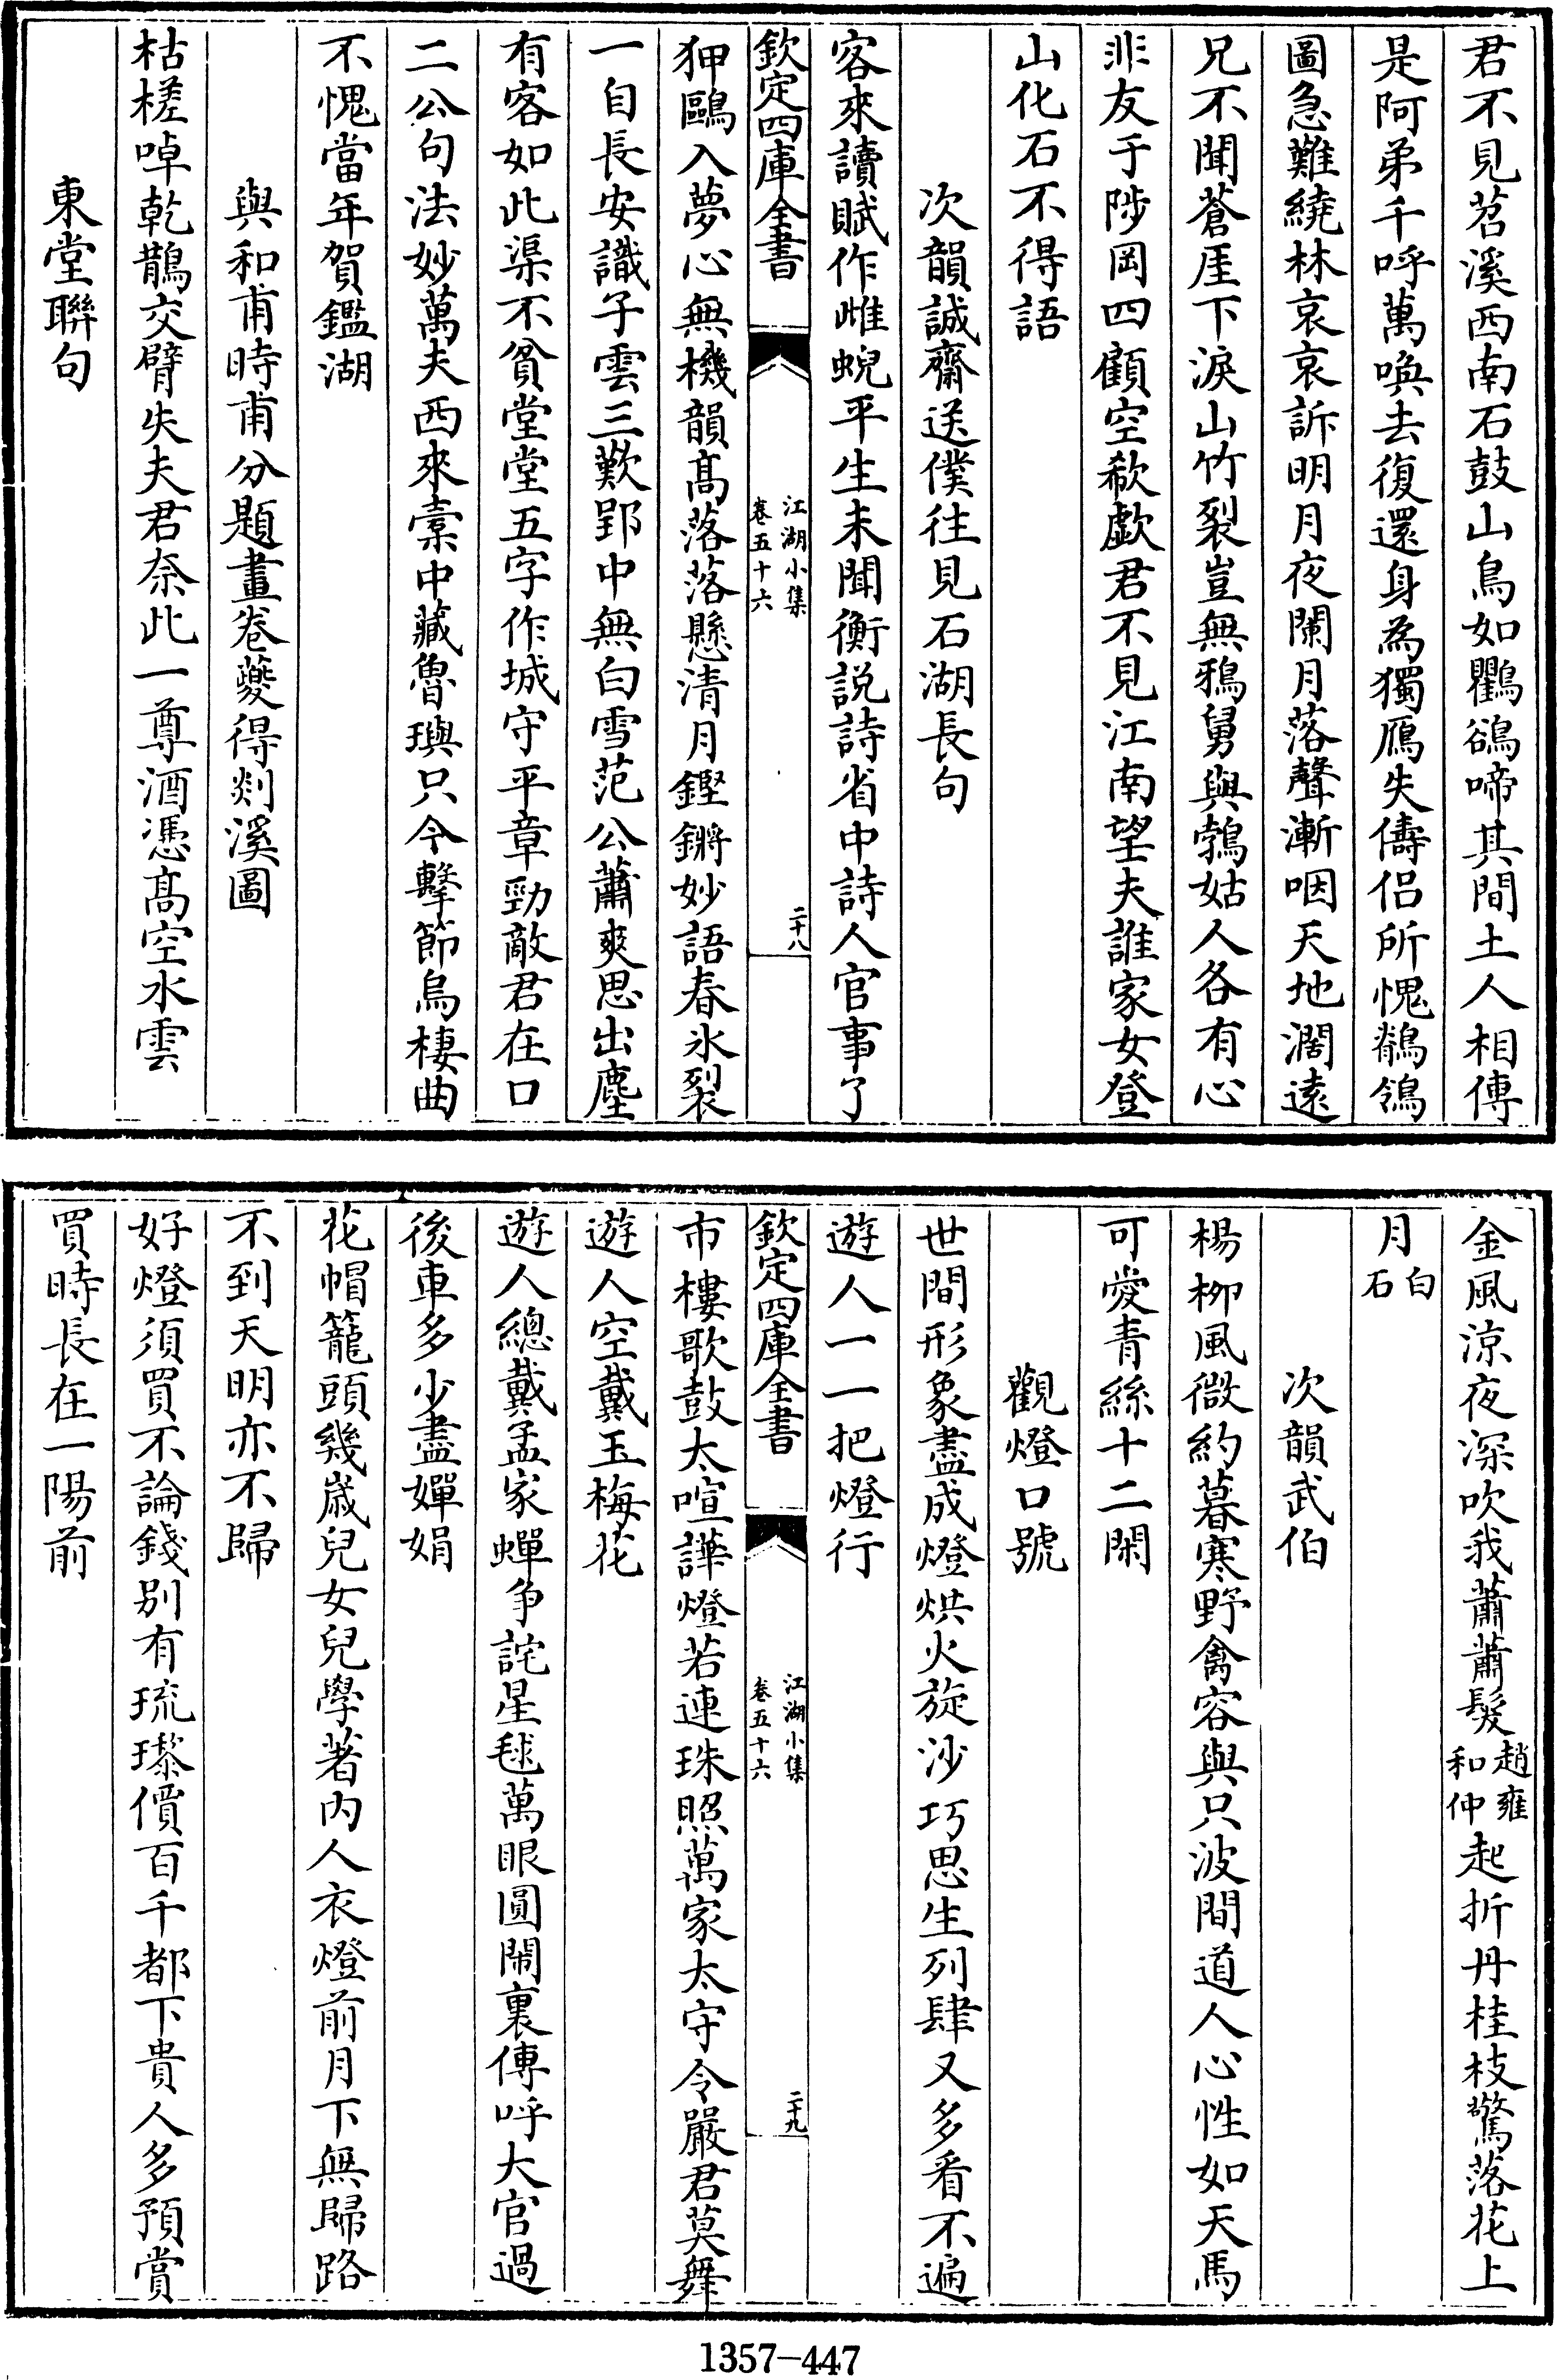 君不見苕溪西南石鼓山鳥如鸜鵒啼其間土人相傳
是阿弟千呼萬喚去復還身為獨鴈失儔侣所愧鶺鴒
圖急難繞林哀哀訴明月夜闌月落聲漸咽天地濶遠
兄不聞蒼厓下淚山竹裂豈無鴉舅與鵓姑人各有心
非友于陟岡四顧空欷歔君不見江南望夫誰家女登
山化石不得語
次韻誠齋送僕往見石湖長句
客來讀賦作雌蜺平生未聞衡説詩省中詩人官事了
欽定四庫全書
江湖小集
卷五十六
二十八
狎鷗入夢心無機韻髙落落懸清月鏗鏘妙語春氷裂
一自長安識子雲三歎郢中無白雪范公蕭爽思出塵
有客如此渠不貧堂堂五字作城守平章勁敵君在口
二公句法妙萬夫西來槖中藏魯璵只今擊節烏棲曲
不愧當年賀鑑湖
與和甫時甫分題畫卷夔得剡溪圖
枯槎啅乾鵲交臂失夫君奈此一尊酒憑髙空水雲
東堂聯句
金風涼夜深吹我蕭蕭髮趙雍和仲起折丹桂枝驚落花上
月白石
次韻武伯
楊柳風微約暮寒野禽容與只波間道人心性如天馬
可愛青絲十二閑
觀燈口號
世間形象盡成燈烘火旋沙巧思生列肆又多看不遍
遊人一一把燈行
欽定四庫全書
江湖小集
卷五十六
二十九
市樓歌鼓太喧譁燈若連珠照萬家太守令嚴君莫舞
遊人空戴玉梅花
遊人總戴孟家蟬争詫星毬萬眼圓閙裏傳呼大官過
後車多少盡嬋娟
花帽籠頭幾歳兒女兒學著内人衣燈前月下無歸路
不到天明亦不歸
好燈須買不論錢别有琉瓈價百千都下貴人多預賞
買時長在一陽前
1357-447